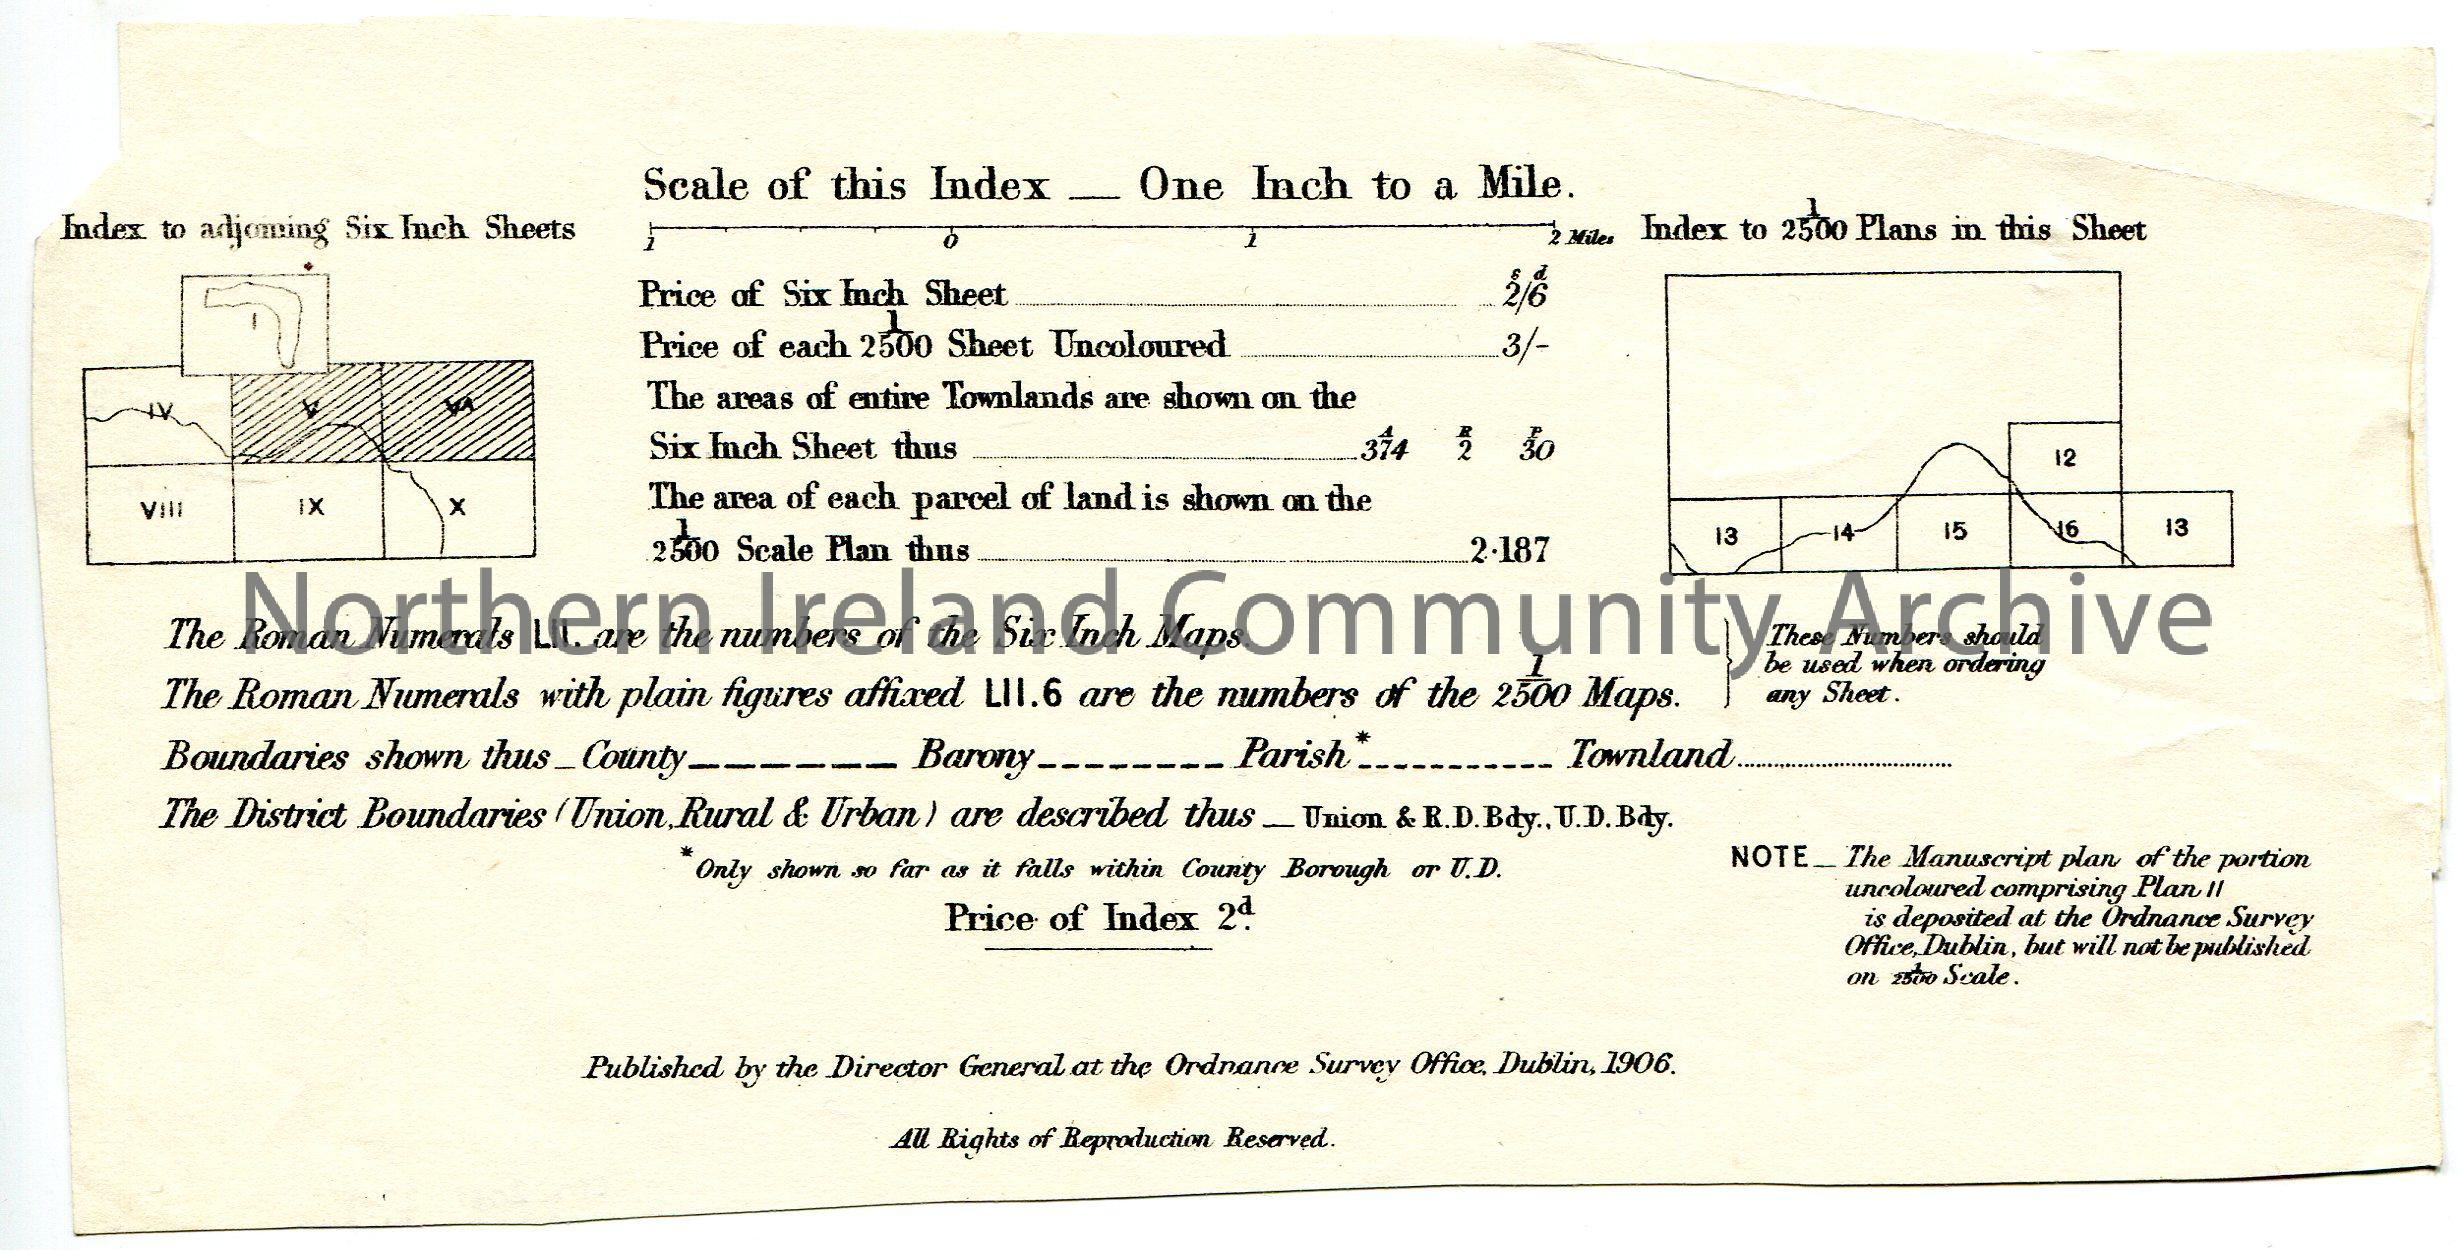 Scale of this Index — One Inch to a Mile.
1 0 1 2 Miles
Index to adjoining Six Inch Sheets
I
IV V VA
VIII IX X
Price of Six Inch Sheet s d 2/6
Price of each 1/2500 Sheet Uncoloured 3/-
The areas of entire Townlands are shown on the
Six Inch Sheet thus A 374 R 2 P 30
The area of each parcel of land is shown on the
1/2500 Scale Plan thus 2·187
Index to 1/2500 Plans in this Sheet
12
13 14 15 16 13
Northern Ireland Community Archive
The Roman Numerals LII. are the numbers of the Six Inch Maps.
The Roman Numerals with plain figures affixed LII.6 are the numbers of the 1/2500 Maps.
These Numbers should
be used when ordering
any Sheet.
Boundaries shown thus — County Barony Parish* Townland
The District Boundaries (Union, Rural & Urban) are described thus — Union & R.D. Bdy., U.D. Bdy.
*Only shown so far as it falls within County Borough or U.D.
Price of Index 2d.
NOTE — The Manuscript plan of the portion
uncoloured comprising Plan 11
is deposited at the Ordnance Survey
Office, Dublin, but will not be published
on 1/2500 Scale.
Published by the Director General at the Ordnance Survey Office, Dublin, 1906.
All Rights of Reproduction Reserved.